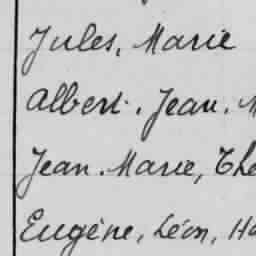 Jules, Marie
Albert. Jean.
Jean. Marie,
Eugène, Léon,